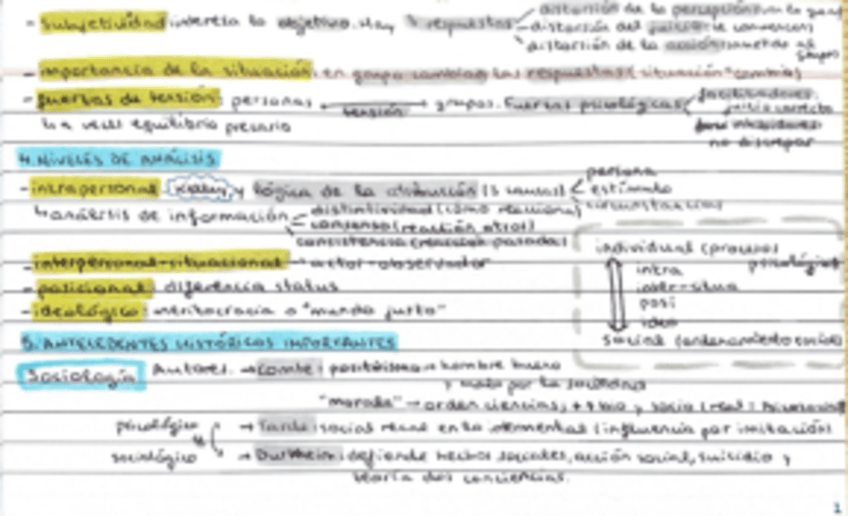 - Subjetividad: interesa lo objetivo. Hay 3 respuestas
distorsión de la percepción:
distorsión del juicio: le convencen
distorsión de la acción: sometido al grupo
- importancia de la situación: en grupo cambian las respuestas (situación cambia)
- fuerzas de tensión: personas tensión grupos. Fuerzas psicológicas
facilitadores: juicio correcto
no discrepar
a veces equilibrio precario
4. NIVELES DE ANÁLISIS
- intrapersonal: Kelley y lógica de la atribución (3 causas)
persona
estímulo
circunstancias
análisis de información
distintividad (cómo reacciona)
consenso (reacción otros)
consistencia (reacción pasada)
- interpersonal-situacional actor-observador
- posicional: diferencia status
- ideológico: meritocracia o "mundo justo"
individual (procesos psicológicos)
intra
inter-situa
posi
ideo
social (ordenamiento social)
5. ANTECEDENTES HISTÓRICOS IMPORTANTES
Sociología Autores. → Comte: positivismo → hombre bueno
y malo por la sociedad
"morada" → orden ciencias; ++ bio y socio (real)
psicológico
sociológico
→ Tarde: social reside en lo elemental (influencia por imitación)
→ Durkheim: defiende hechos sociales, acción social, suicidio y
teoría dos conciencias.